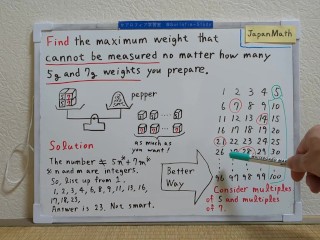 JapanMath
Find the maximum weight that
cannot be measured no matter how many
5g and 7g weights you prepare.
pepper
as much as
you want!
Solution
The number ≠ 5n*+7m*
※ n and m are integers.
So, list up from 1.
1, 2, 3, 4, 6, 8, 9, 11, 13, 16,
17, 18, 23,
Answer is 23. Not smart.
Better
Way
1 2 3 4 5
6 7 8 9 10
11 12 13 14 15
16 17 18 19 20
21 22 23 24 25
26 28 29 30
96 97 98 99 100
Consider multiples
of 5 and multiples
of 7.